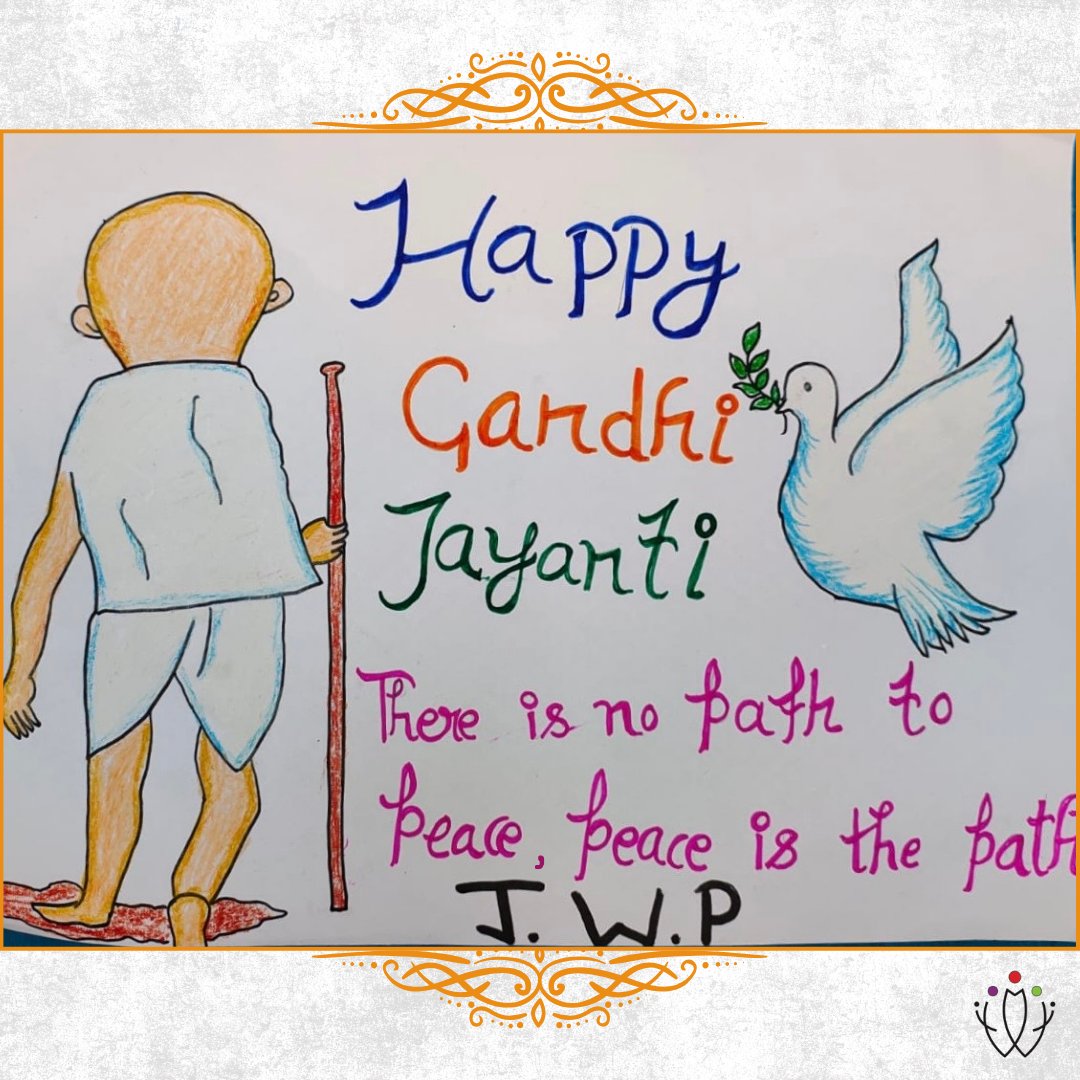 Happy
Gandhi
Jayanti
There is no path to
peace, peace is the path
J.W.P